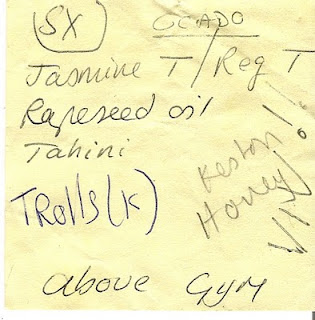 SX OCADO
Jasmine T / Reg T
Rapeseed oil
Tahini
Keston
Honey!!
TRollS (K)
above Gym